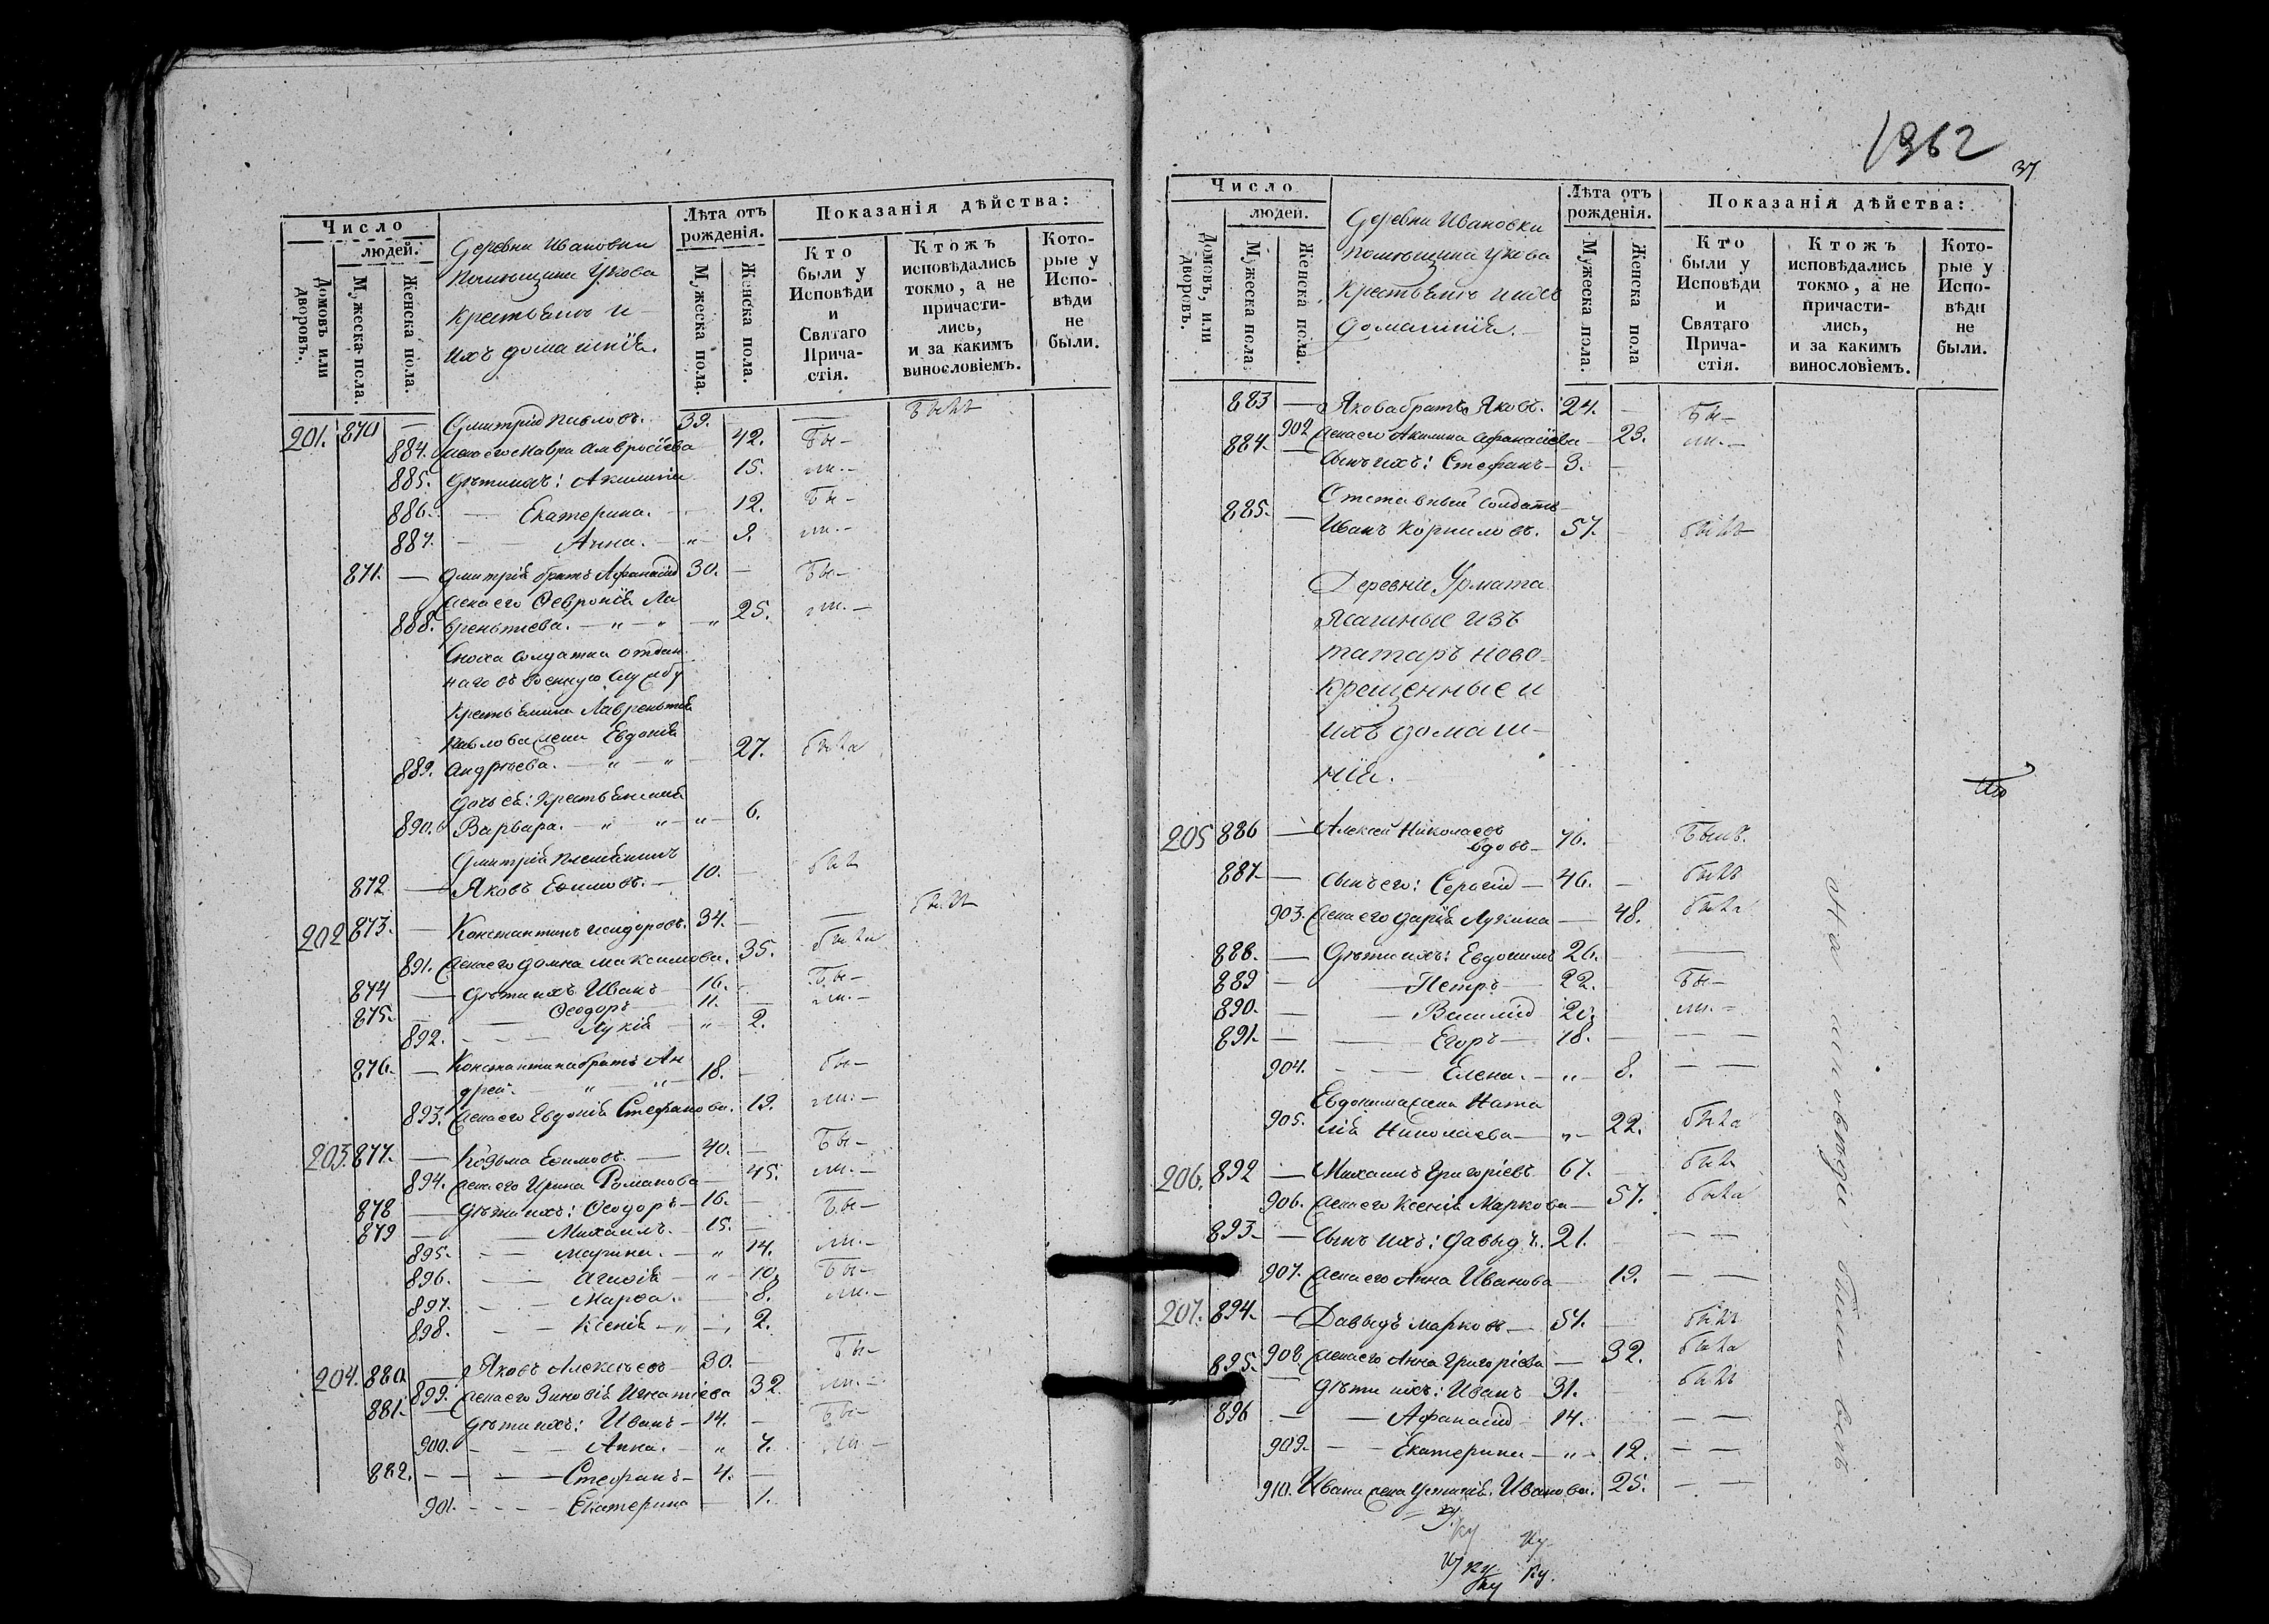 Число
людей.
Домовъ или дворовъ.
Мужеска пола.
Женска пола.
Деревни Ивановки
Помѣщика Укова
Крестьяне и
ихъ домашнія.
Лѣта отъ рожденія.
Мужеска пола.
Женска пола.
Показанія дѣйства:
Кто были у Исповѣди и Святаго Причастія.
Ктожъ исповѣдались токмо, а не причастились, и за какимъ винословіемъ.
Которые у Исповѣди не были.
201. 870 — Дмитрій Павловъ. 39. — — былъ
884. жена его Мавра Амвросіева 42. бы-
885. дѣти ихъ: Акилина 15. ли. -
886. — Екатерина. 12. бы-
887. — Анна. " 9. ли. -
871. — Дмитрія братъ Афанасій 30. — бы-
жена его Февронія Ла
888. врентьева. — " — " — " 25. ли. —
Сноха солдатка отдан
наго въ военную службу
Крестьянина Лаврентія
Павлова жена Евдокія
889. Андреева. — " — " 27. была
дочь ея: Крестьянская
890. Варвара. — " — " — " 6.
Дмитрія племянникъ
872 — Яковъ Ефимовъ. — 10. — былъ
202 873. — Константинъ Исидоровъ. 34. — — былъ
891. жена его Домна Максимова. 35. была
874 — дѣти ихъ Иванъ — 16. бы-
875. — Ѳеодоръ — 11. — ли. -
892. — Лукія — " — 2.
876. — Константина братъ Ан
дрей. " — " — 18. — бы-
893. жена его Евдокія Стефанова. 19. ли. —
203. 877. — Козьма Ефимовъ. — 40. — бы-
894. жена его Ирина Романова — 45. ли. —
878 — дѣти ихъ: Ѳеодоръ — 16. — бы-
879 — Михаилъ. — 15. —
895. — Марина. — " 14. ли. —
896. — Агафія — " 10. бы-
897. — Марѳа. — 8. ли. -
898. — Ксенія — " 2.
204. 880. — Яковъ Алексѣевъ — 30. — бы-
899. жена его Зиновія Игнатіева 32. ли. —
881. — дѣти ихъ: Иванъ — 14. — бы-
900. — Анна. — " 7. ли —
882. — Стефанъ — 4. —
901. — Екатерина 1.
1362
37
Число
людей.
Домовъ, или дворовъ.
Мужеска пола.
Женска пола.
Деревни Ивановки
помѣщика Укова
Крестьяне и ихъ
домашнія. —
Лѣта отъ рожденія.
Мужеска пола.
Женска пола
Показанія дѣйства:
Кто были у Исповѣди и Святаго Причастія.
Ктожъ исповѣдались токмо, а не причастились, и за какимъ винословіемъ.
Которые у Исповѣди не были.
883 — Якова братъ Яковъ. 24. — бы-
902 жена его Акилина Афанасіева — 23. ли. -
884. — сынъ ихъ: Стефанъ — 3. —
Отставный солдатъ
885. — Иванъ Корниловъ. 57. — былъ
Деревни Урмата
ясашные изъ
татаръ ново-
крещенные и
ихъ домаш-
нія.
205 886 — Алексей Николаевъ
вдовъ — 76. былъ.
887. — сынъ его: Сергій — 46. — былъ
903. жена его Дарія Лукина — 48. была
888. — дѣти ихъ: Евдокимъ 26. — —
889 — Петръ — 22. бы-
890. — Василій 20. ли. -
891. — Егоръ — 18. — —
904. — Елена. — " — 8. — —
Евдокима жена Ната
905. лія Николаева — " — 22. была
206. 892 — Михаилъ Григорьевъ 67. — былъ
906. жена его Ксенія Маркова — 57. была
893. — сынъ ихъ: Давыдъ. 21. — —
907. жена его Анна Иванова 19. — —
207. 894. — Давыдъ Марковъ — 57. — былъ
908. жена его Анна Григоріева — 32. была
895. — дѣти ихъ: Иванъ — 31. — былъ
896 — Афанасій 14. — —
909. — Екатерина — " 12. — —
910. Ивана жена Устинія Иванова. 25. — —
На исповѣди были всѣ